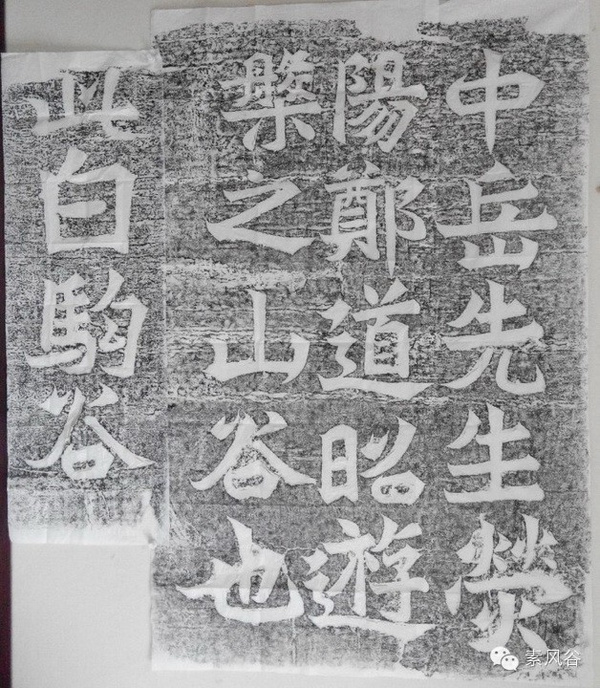 中岳先生熒
陽鄭道昭遊
槃之山谷也
此白駒谷
素风谷